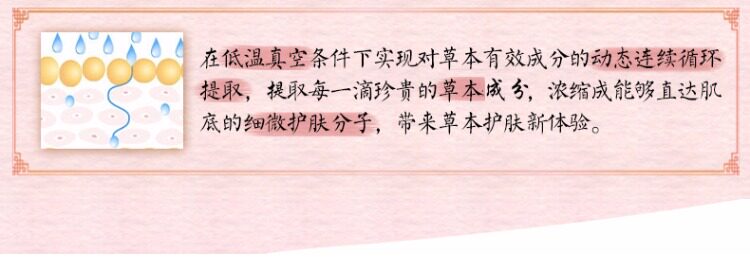 在低温真空条件下实现对草本有效成分的动态连续循环
提取，提取每一滴珍贵的草本成分，浓缩成能够直达肌
底的细微护肤分子，带来草本护肤新体验。